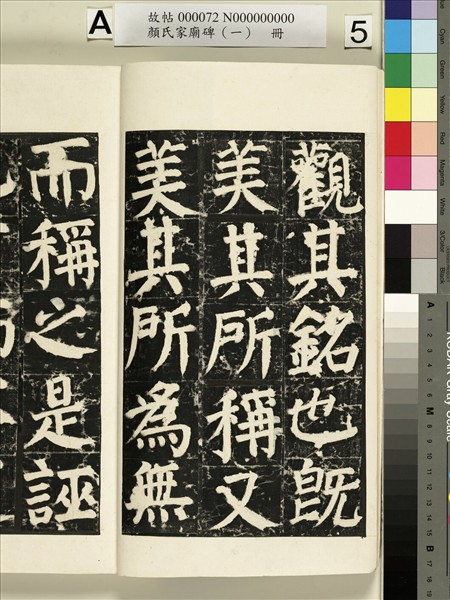 A
故帖 000072 N000000000
顏氏家廟碑（一） 冊
5
觀其銘也既
美其所稱又
美其所為無
而稱之是誣
Cyan
Green
Yellow
Red
Magenta
White
3/Color
Black
A
1
2
3
4
5
6
M
8
9
10
11
12
13
14
15
B
17
18
19